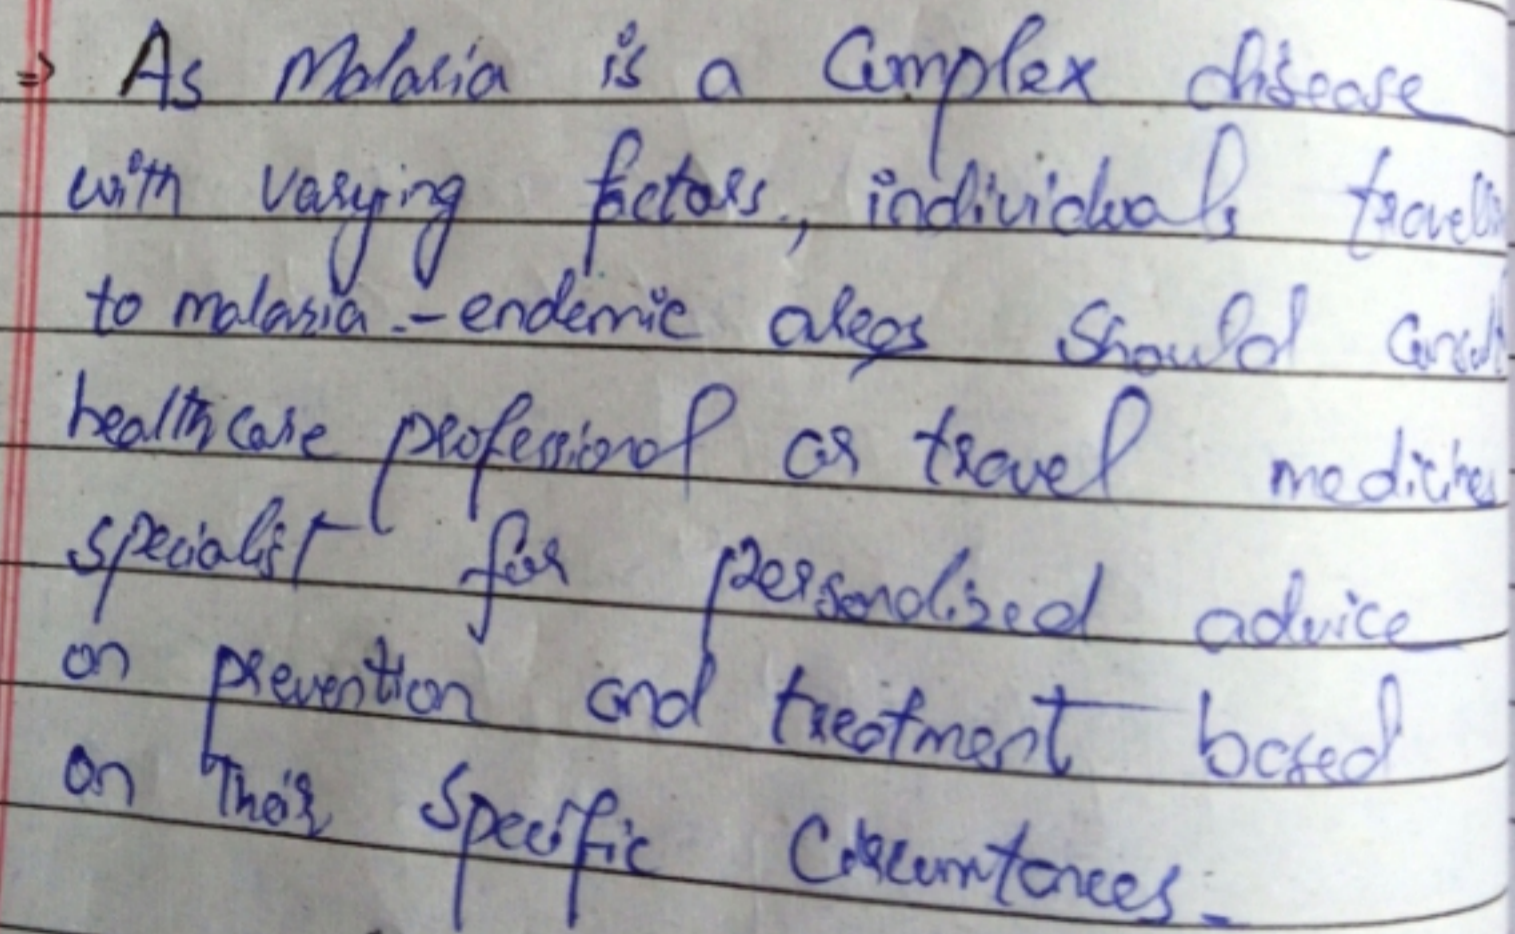 ⇒ As Malaria is a Complex disease
with varying factors, individuals travellin
to malaria - endemic areas should consult
healthcare professional or travel medicines
specialist for personalized advice
on prevention and treatment based
on their specific Circumtances.